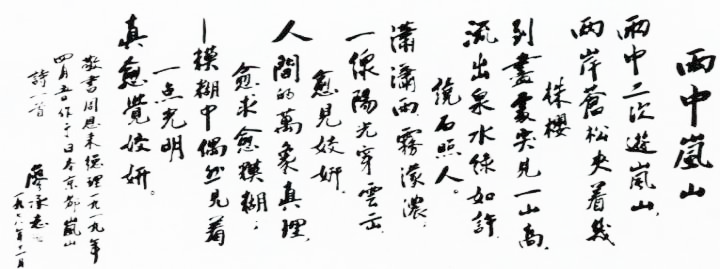 雨中嵐山
雨中二次遊嵐山,
兩岸蒼松夾着幾
株櫻
到盡處突見一山高,
流出泉水綠如許,
繞石照人。
瀟瀟雨,霧濛濃,
一線陽光穿雲出,
愈見姣妍。
人間的萬象真理,
愈求愈模糊;
—模糊中偶然見着
一点光明
真愈覺姣妍。
敬書周恩来總理一九一九年
四月五日作于日本京都嵐山
詩一首
廖承志
一九七八年十一月